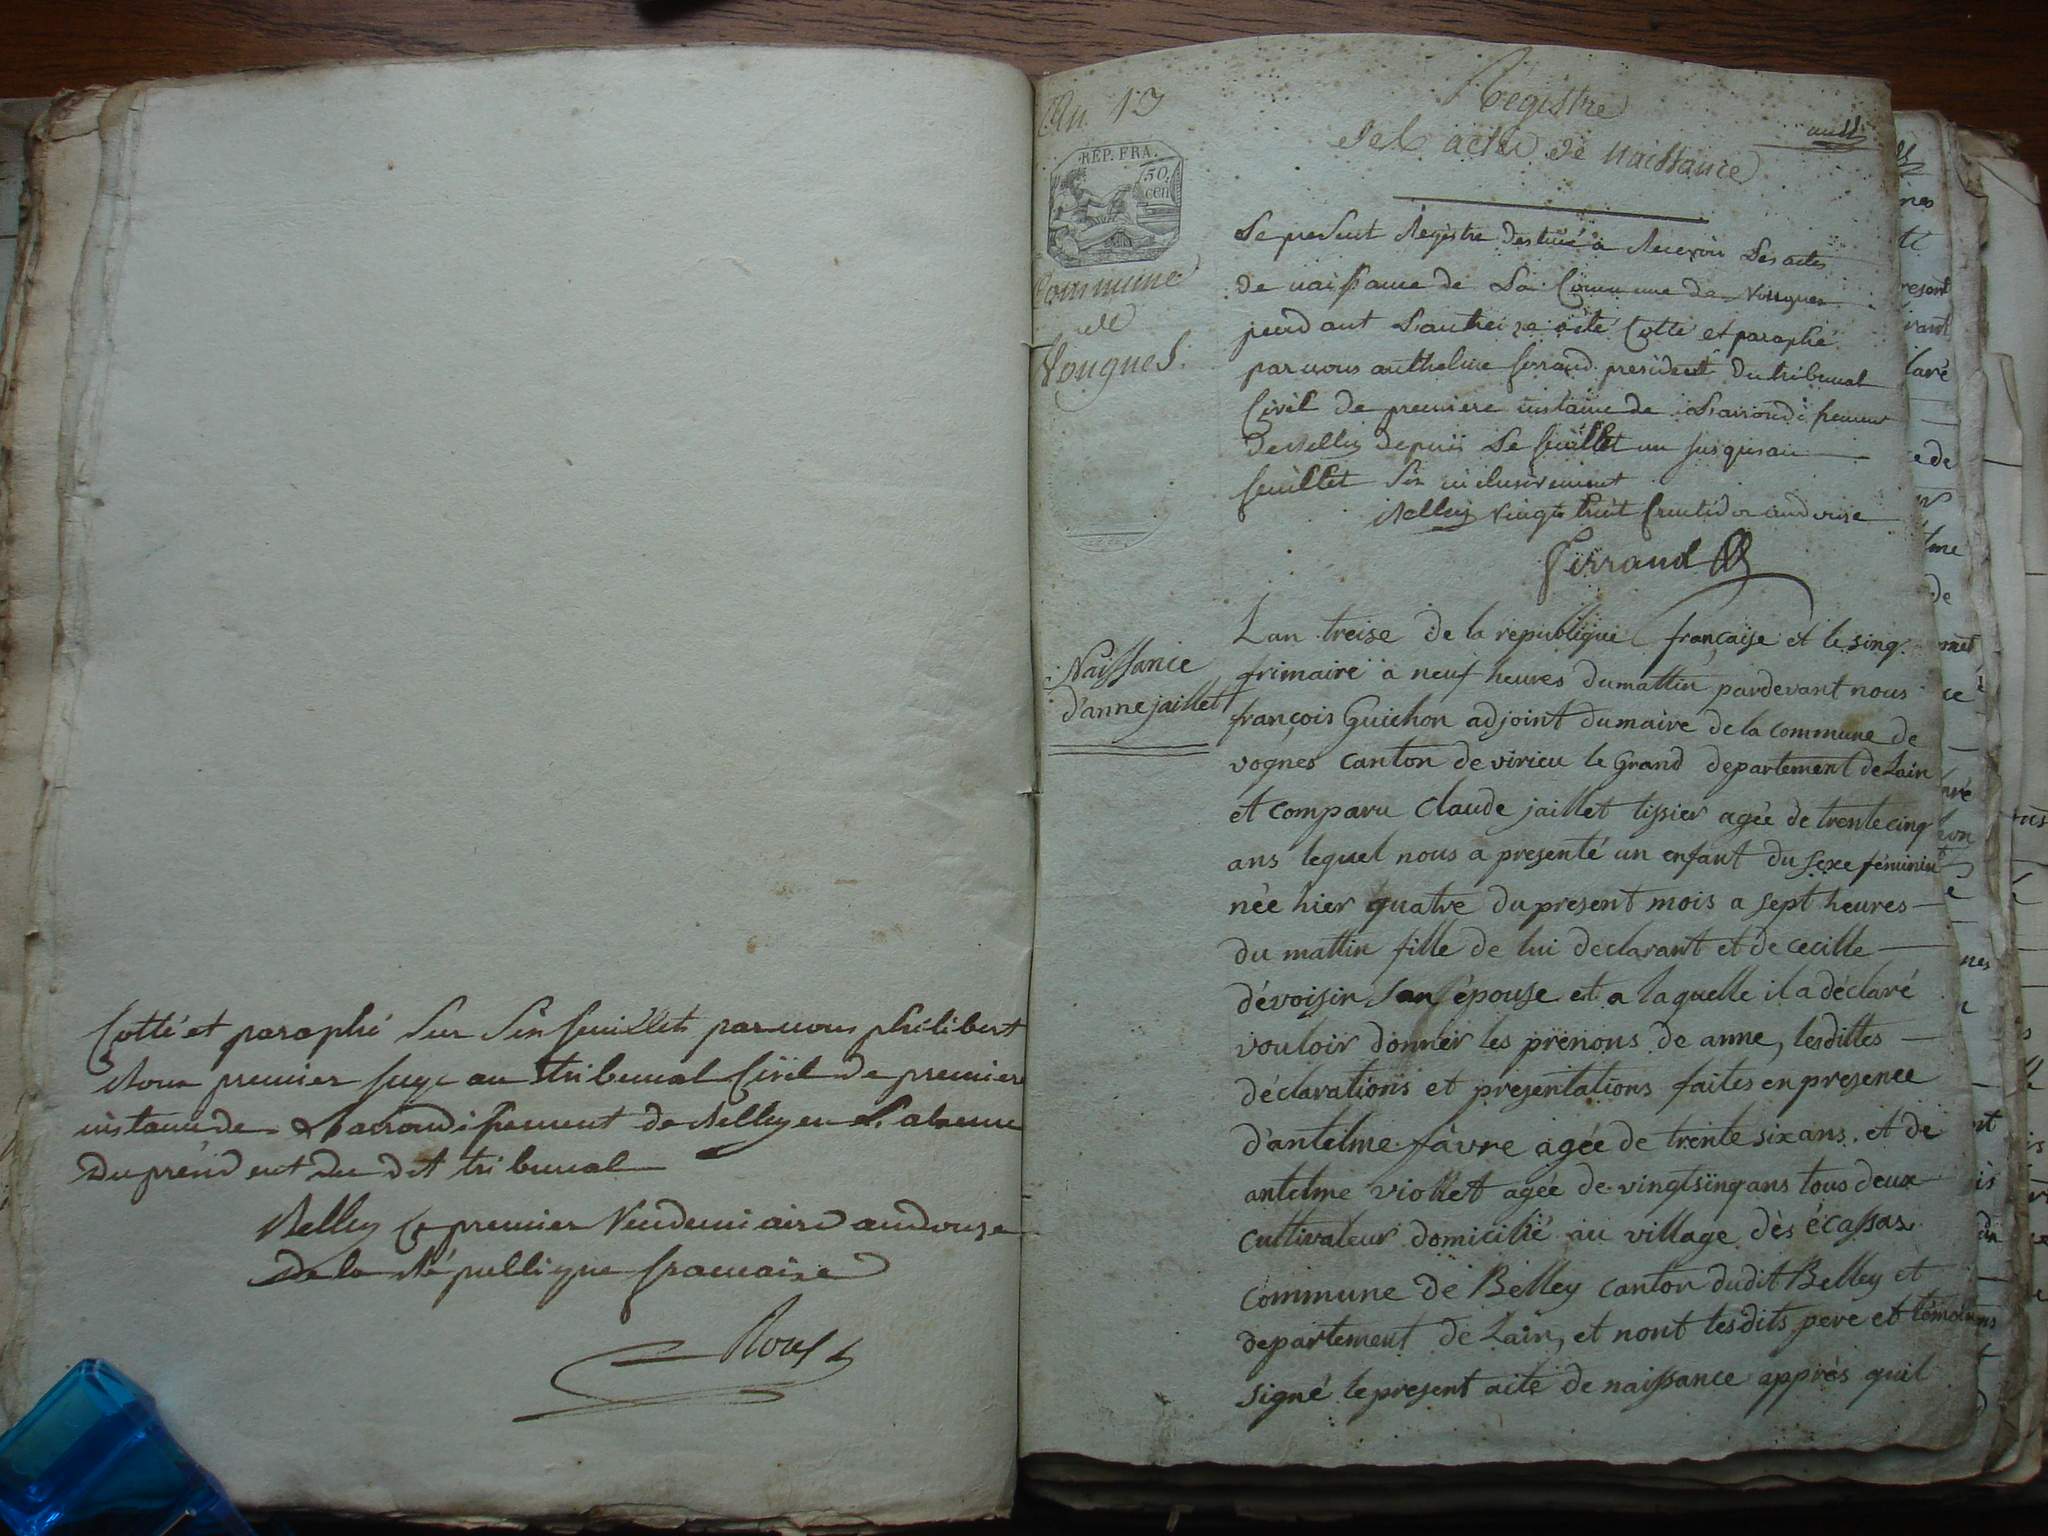 Cotté et paraphé sur six feuillets par nous philibert
Roux premier juge au tribunal Civil de premiere
instance de L'arrondissement de Belley en L'absence
Du président du dit tribunal
Belley le premier Vendemiaire an douze
De la République francaise
Roux
An. 13
REP. FRA.
50 cen
Commune
de
Vougnes.
Régistre
des actes de naissance
Le present Régistre destiné à Recevoir Les actes
De naissance de La Commune de Vougnes
pendant L'an treize a été Cotté et paraphé
par nous anthelme ferrand président Du tribunal
Civil De premiere instance de L'arrondissement
De Belley Depuis Le feuillet un jusqu'au
feuillet six inclusivement
Belley vingt huit fructidor an douze
Ferrand
Naissance
d'anne jaillet
L'an treise de la republique française et le sinq
frimaire à neuf heures du mattin pardevant nous
françois Guichon adjoint du maire de la commune de
vognes canton de virieu le Grand departement de Lain
et comparu Claude jaillet tissier agée de trente cinq
ans lequel nous a presenté un enfant du sexe féminin
née hier quatre du present mois a sept heures
du mattin fille de lui declarant et de cecille
dévoisin son épouse et a laquelle il a déclaré
vouloir donner les prénons de anne, lesdittes
déclarations et presentations faites en presence
d'antelme fâvre agée de trente six ans. et de
antelme viollet agée de vingt sinq ans tous deux
cultivateur domicilié au village dès écassas
commune de Belley canton dudit Belley et
departement de Lain, et nont lesdits pere et témoins
signé le present acte de naissance apprés quil